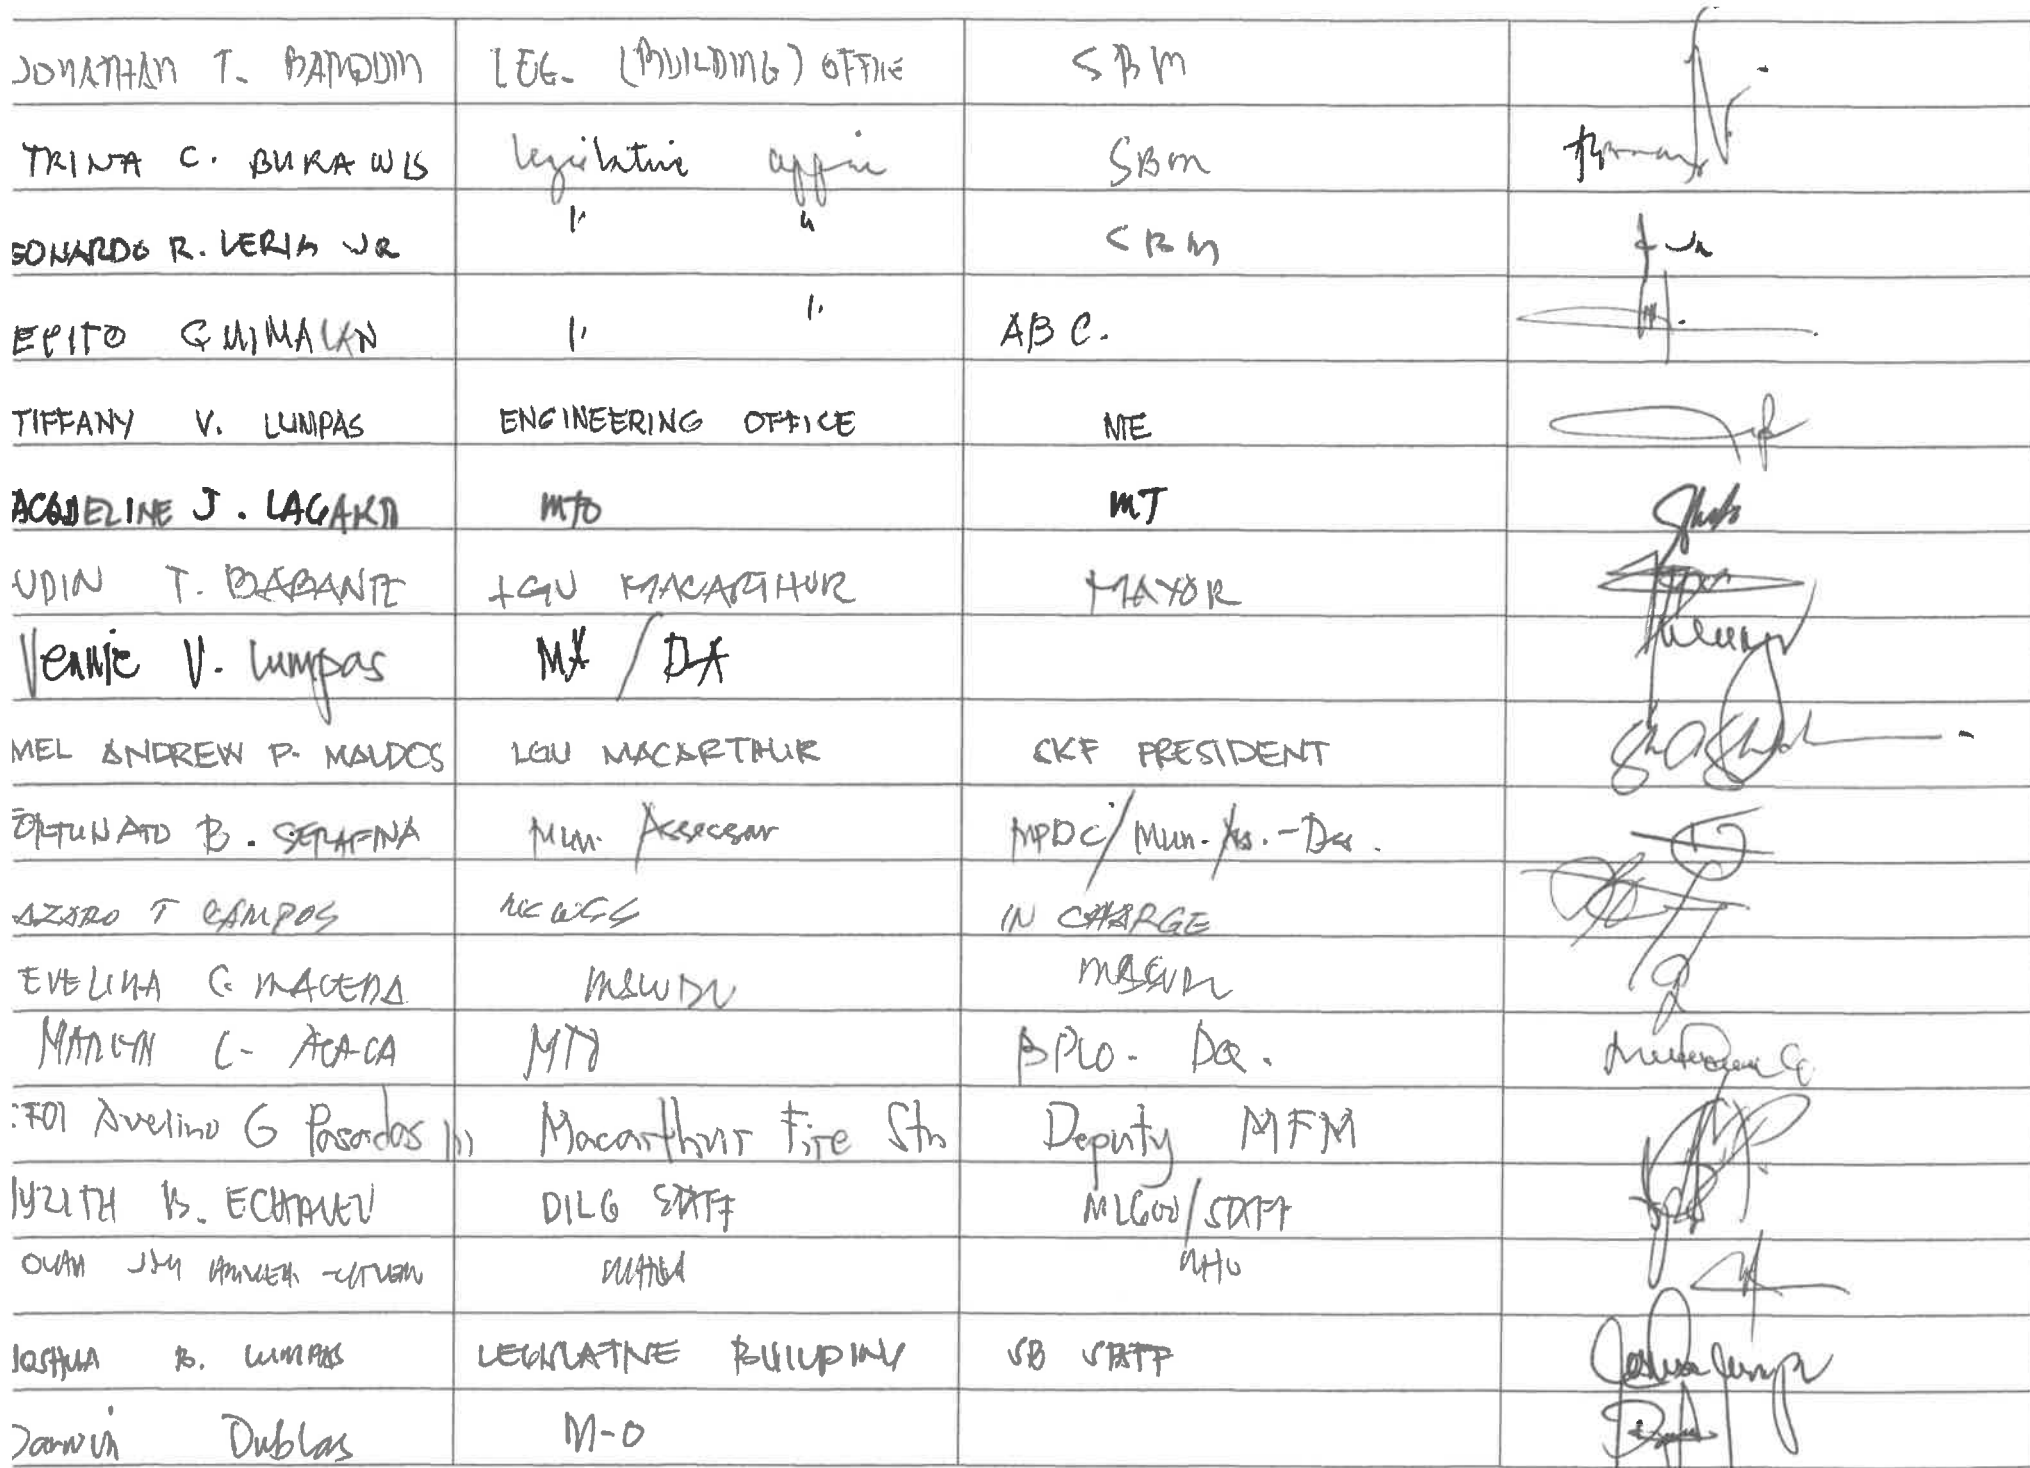 JONATHAN T. BANQUIN LEG. (BUILDING) OFFICE SBM
TRINA C. BURAWIS legislative affair SBM
EONARDO R. LERIA JR " " SBM
EPITO QUIMALAN " " ABC.
TIFFANY V. LUMPAS ENGINEERING OFFICE ME
ACQUELINE J. LAGARTA MTO MT
UDIN T. BABANTE LGU MACARTHUR MAYOR
Vennie V. Lumpas MA / DA
MEL ANDREW P. MALDOS LGU MACARTHUR SKF PRESIDENT
ORTUNATO B. SERAFINA Mun. Assessor MPDC/Mun. Ass.-Des.
AZARO T CAMPOS IN CHARGE
EVELINA C. MACEDA MSWDO MSWDO
MARILYN C. ACACA MTO BPLO - DQ.
FO1 Avelino G Posadas III Macarthur Fire Stn Deputy MFM
B. ECHAVEZ DILG STAFF MLGOO/STAFF
MHO
JOSHUA B. LUMPAS LEGISLATIVE BUILDING SB STAFF
Darwin Dublas M-O